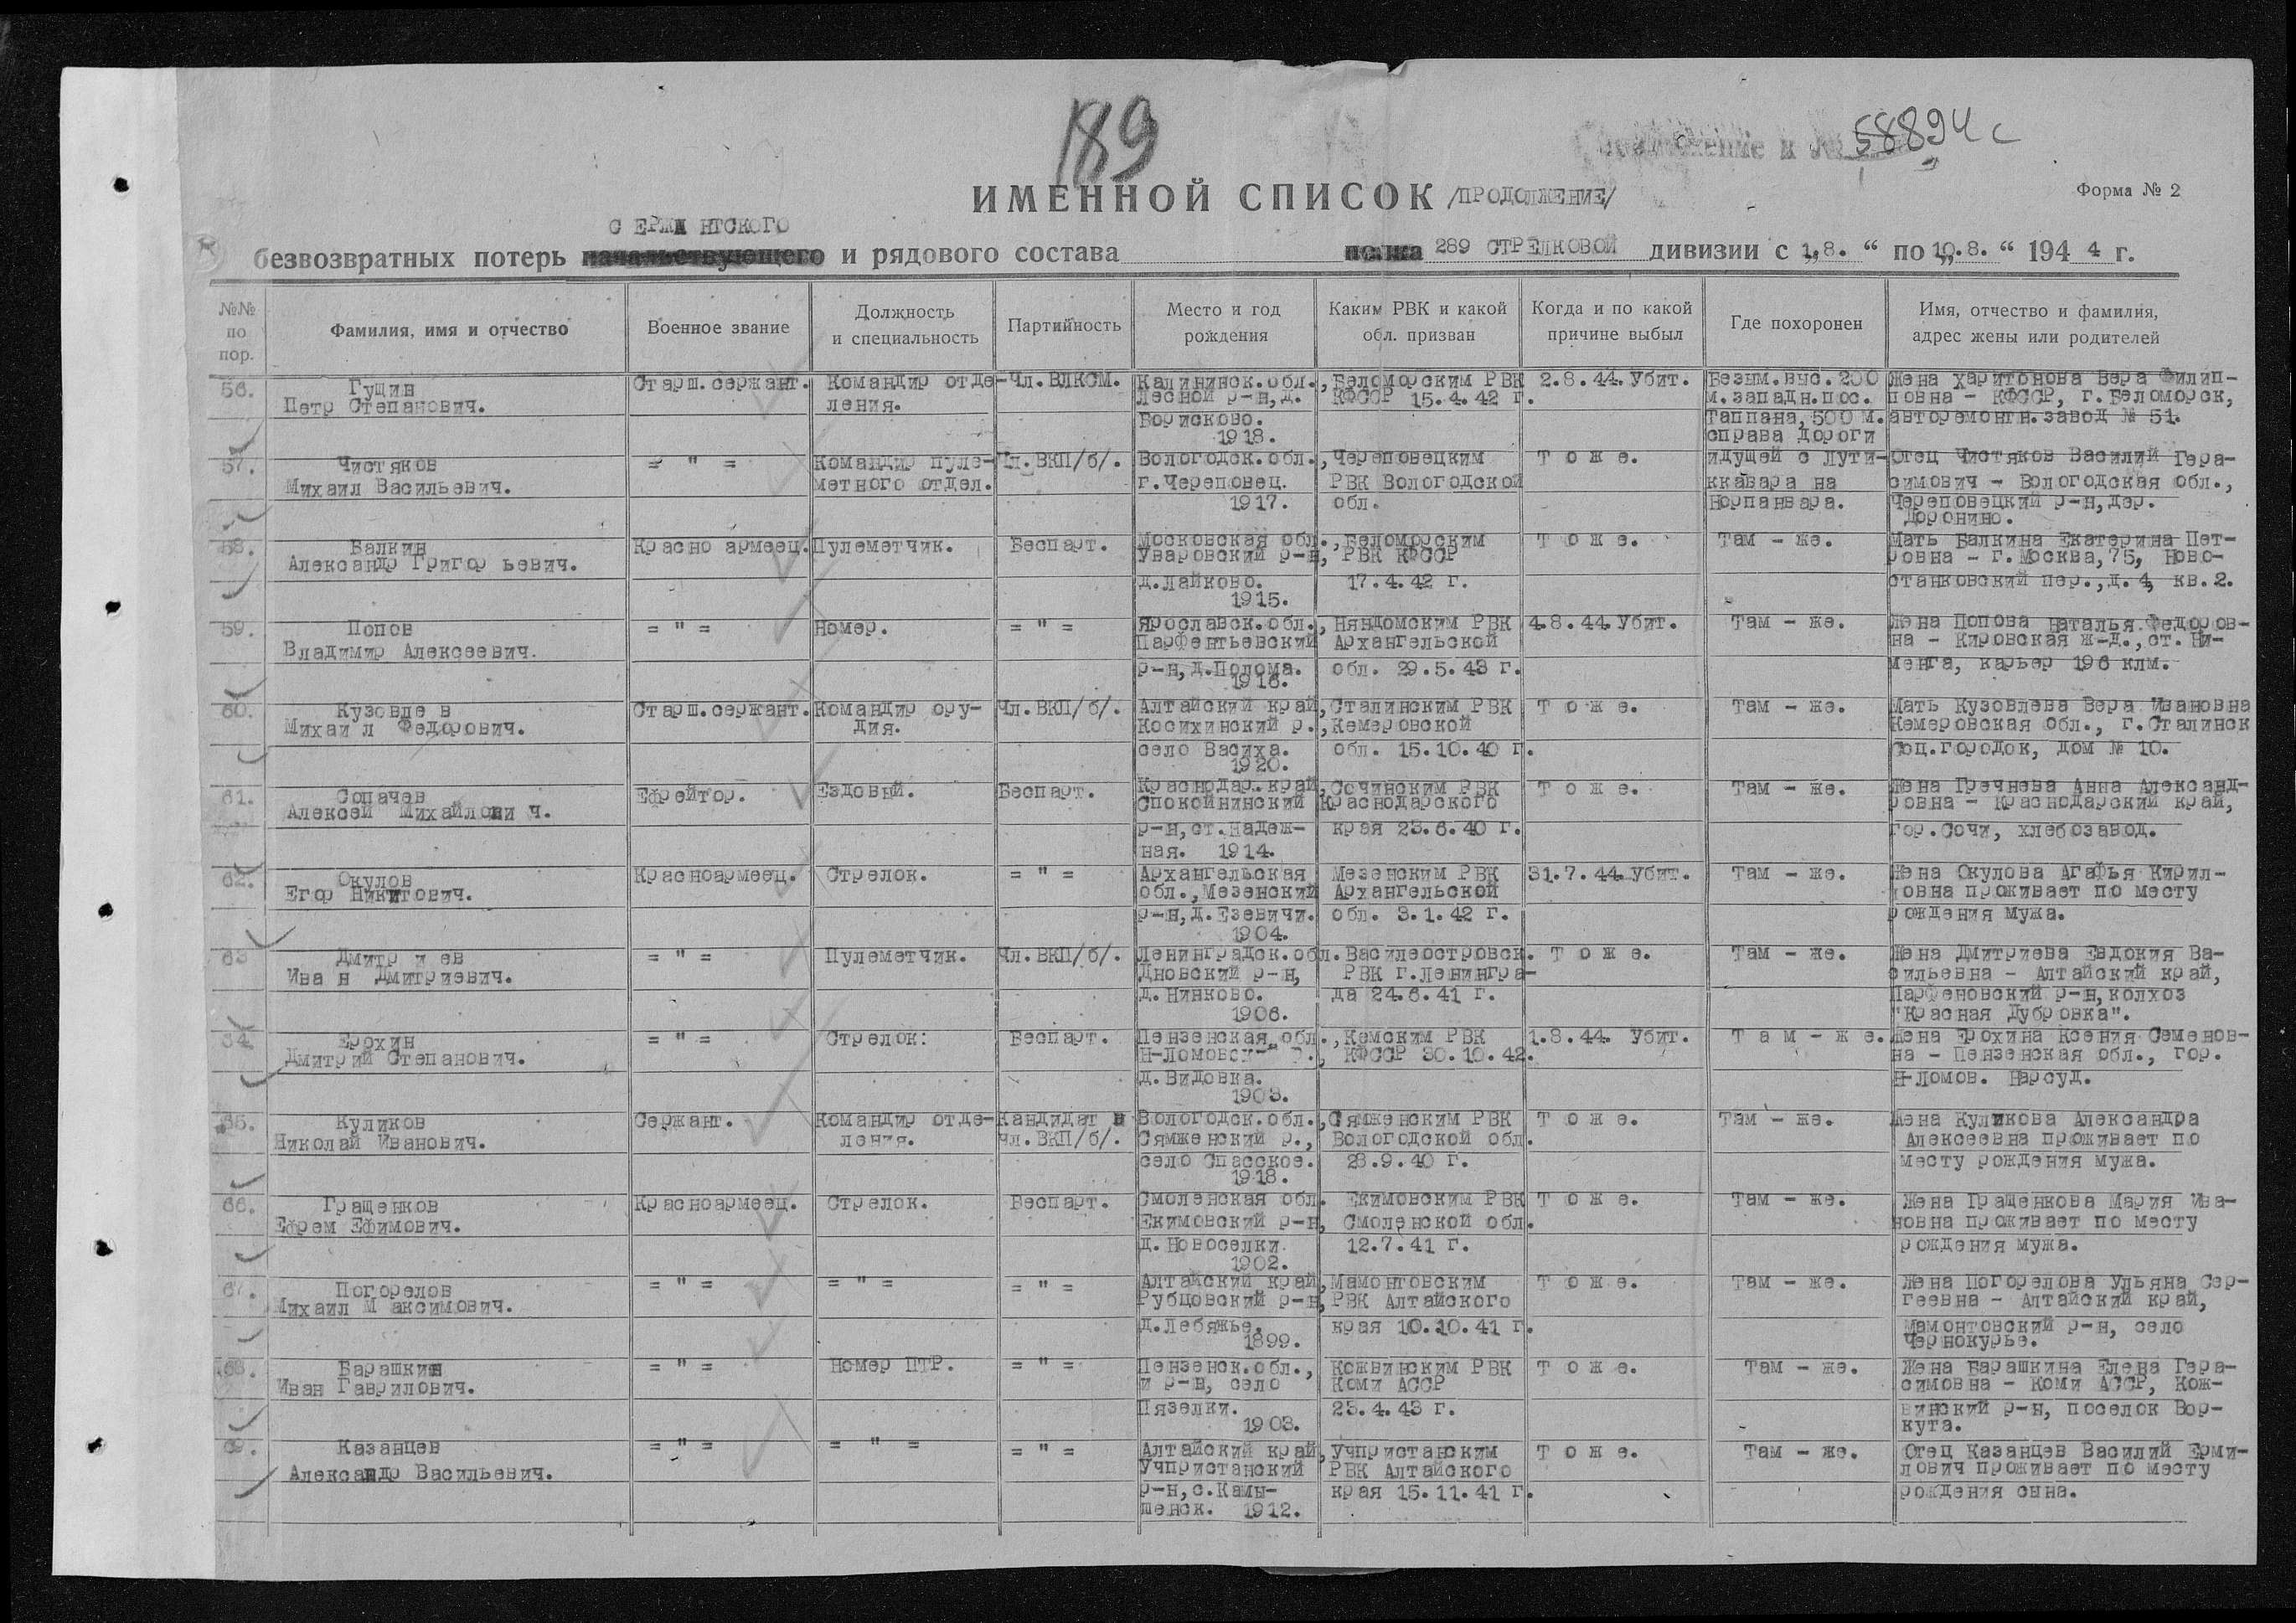 189
58894с
ИМЕННОЙ СПИСОК /ПРОДОЛЖЕНИЕ/
Форма № 2
СЕРЖАНТСКОГО
безвозвратных потерь начальствующего и рядового состава полка 289 СТРЕЛКОВОЙ дивизии с „1.8. “ по „10.8. “ 1944 г.
№№ по пор. Фамилия, имя и отчество Военное звание Должность и специальность Партийность Место и год рождения Каким РВК и какой обл. призван Когда и по какой причине выбыл Где похоронен Имя, отчество и фамилия, адрес жены или родителей
56. Гущин Старш.сержант. Командир отде- Чл.ВЛКСМ. Калининск.обл., Беломорским РВК 2.8.44.Убит. Безым.выс.200 Жена Харитонова Вера Филип-
Петр Степанович. ления. Лесной р-н,д. КФССР 15.4.42 г. м.западн.пос. повна - КФССР, г.Беломорск,
Борисково. Таппана,500 м. авторемонтн.завод № 51.
1918. справа дороги
57. Чистяков = " = Командир пуле- Чл.ВКП/б/. Вологодск.обл., Череповецким Т о ж е. идущей с Лути- Отец Чистяков Василий Гера-
Михаил Васильевич. метного отдел. г.Череповец. РВК Вологодской ккавара на симович - Вологодская обл.,
1917. обл. Норпанвара. Череповецкий р-н,дер.
Доронино.
58. Балкин Красно армеец. Пулеметчик. Беспарт. Московская обл., Беломорским Т о ж е. Там - же. Мать Балкина Екатерина Пет-
Александр Григор ьевич. Уваровский р-н, РВК КФССР ровна - г.Москва,75, Ново-
д.Лайково. 17.4.42 г. станковский пер.,д.4, кв.2.
1915.
59. Попов = " = Номер. = " = Ярославск.обл., Няндомским РВК 4.8.44.Убит. Там - же. Жена Попова Наталья Федоров-
Владимир Алексеевич. Парфентьевский Архангельской на - Кировская ж-д.,ст.Ни-
р-н,д.Полома. обл. 29.5.43 г. менга, карьер 196 клм.
1916.
60. Кузовле в Старш.сержант. Командир ору- Чл.ВКП/б/. Алтайский край, Сталинским РВК Т о ж е. Там - же. Мать Кузовлева Вера Ивановна
Михаи л Федорович. дия. Косихинский р., Кемеровской Кемеровская обл., г.Сталинск
село Васиха. обл. 15.10.40 г. Соц.городок, дом № 10.
1920.
61. Сопачев Ефрейтор. Ездовый. Беспарт. Краснодар.край, Сочинским РВК Т о ж е. Там - же. Жена Гречнева Анна Александ-
Алексей Михайлови ч. Спокойнинский Краснодарского ровна - Краснодарский край,
р-н,ст.Надеж- края 23.6.40 г. гор.Сочи, хлебозавод.
ная. 1914.
62. Окулов Красноармеец. Стрелок. = " = Архангельская Мезенским РВК 31.7.44.Убит. Там - же. Жена Окулова Агафья Кирил-
Егор Никитович. обл.,Мезенский Архангельской ловна проживает по месту
р-н,д.Езевичи. обл. 3.1.42 г. рождения мужа.
1904.
63 Дмитр и ев = " = Пулеметчик. Чл.ВКП/б/. Ленинградск.обл. Василеостровск. Т о ж е. Там - же. Жена Дмитриева Евдокия Ва-
Ива н Дмитриевич. Дновский р-н, РВК г.Ленингра- сильевна - Алтайский край,
д.Нинково. да 24.6.41 г. Парфеновский р-н,колхоз
1906. "Красная Дубровка".
64. Ерохин = " = Стрелок: Беспарт. Пензенская обл., Кемским РВК 1.8.44. Убит. Т а м - ж е. Жена Ерохина Ксения Семенов-
Дмитрий Степанович. Н-Ломовс КФССР 30.10.42. на - Пензенская обл., гор.
д.Видовка. Н-Ломов. Нарсуд.
1903.
65. Куликов Сержант. Командир отде- Кандидат в Вологодск.обл., Сямженским РВК Т о ж е. Там - же. Жена Куликова Александра
Николай Иванович. ления. чл.ВКП/б/. Сямженский р., Вологодской обл. Алексеевна проживает по
село Спасское. 28.9.40 г. месту рождения мужа.
1918.
66. Гращенков Красноармеец. Стрелок. Беспарт. Смоленская обл. Екимовским РВК Т о ж е. Там - же. Жена Гращенкова Мария Ива-
Ефрем Ефимович. Екимовский р-н, Смоленской обл. новна проживает по месту
д.Новоселки. 12.7.41 г. рождения мужа.
1902.
67. Погорелов = " = = " = = " = Алтайский край, Мамонтовским Т о ж е. Там - же. Жена Погорелова Ульяна Сер-
Михаил М аксимович. Рубцовский р-н, РВК Алтайского геевна - Алтайский край,
д.Лебяжье. края 10.10.41 г. Мамонтовский р-н, село
1899. Чернокурье.
68. Барашкин = " = Номер ПТР. = " = Пензенск.обл., Кожвинским РВК Т о ж е. Там - же. Жена Барашкина Елена Гера-
Иван Гаврилович. и р-н, село Коми АССР симовна - Коми АССР, Кож-
Пязелки. 23.4.43 г. винский р-н, поселок Вор-
1903. кута.
69. Казанцев = " = = " = = " = Алтайский край, Учпристанским Т о ж е. Там - же. Отец Казанцев Василий Ерми-
Александр Васильевич. Учпристанский РВК Алтайского лович проживает по месту
р-н,с.Камы- края 15.11.41 г. рождения сына.
шенск. 1912.